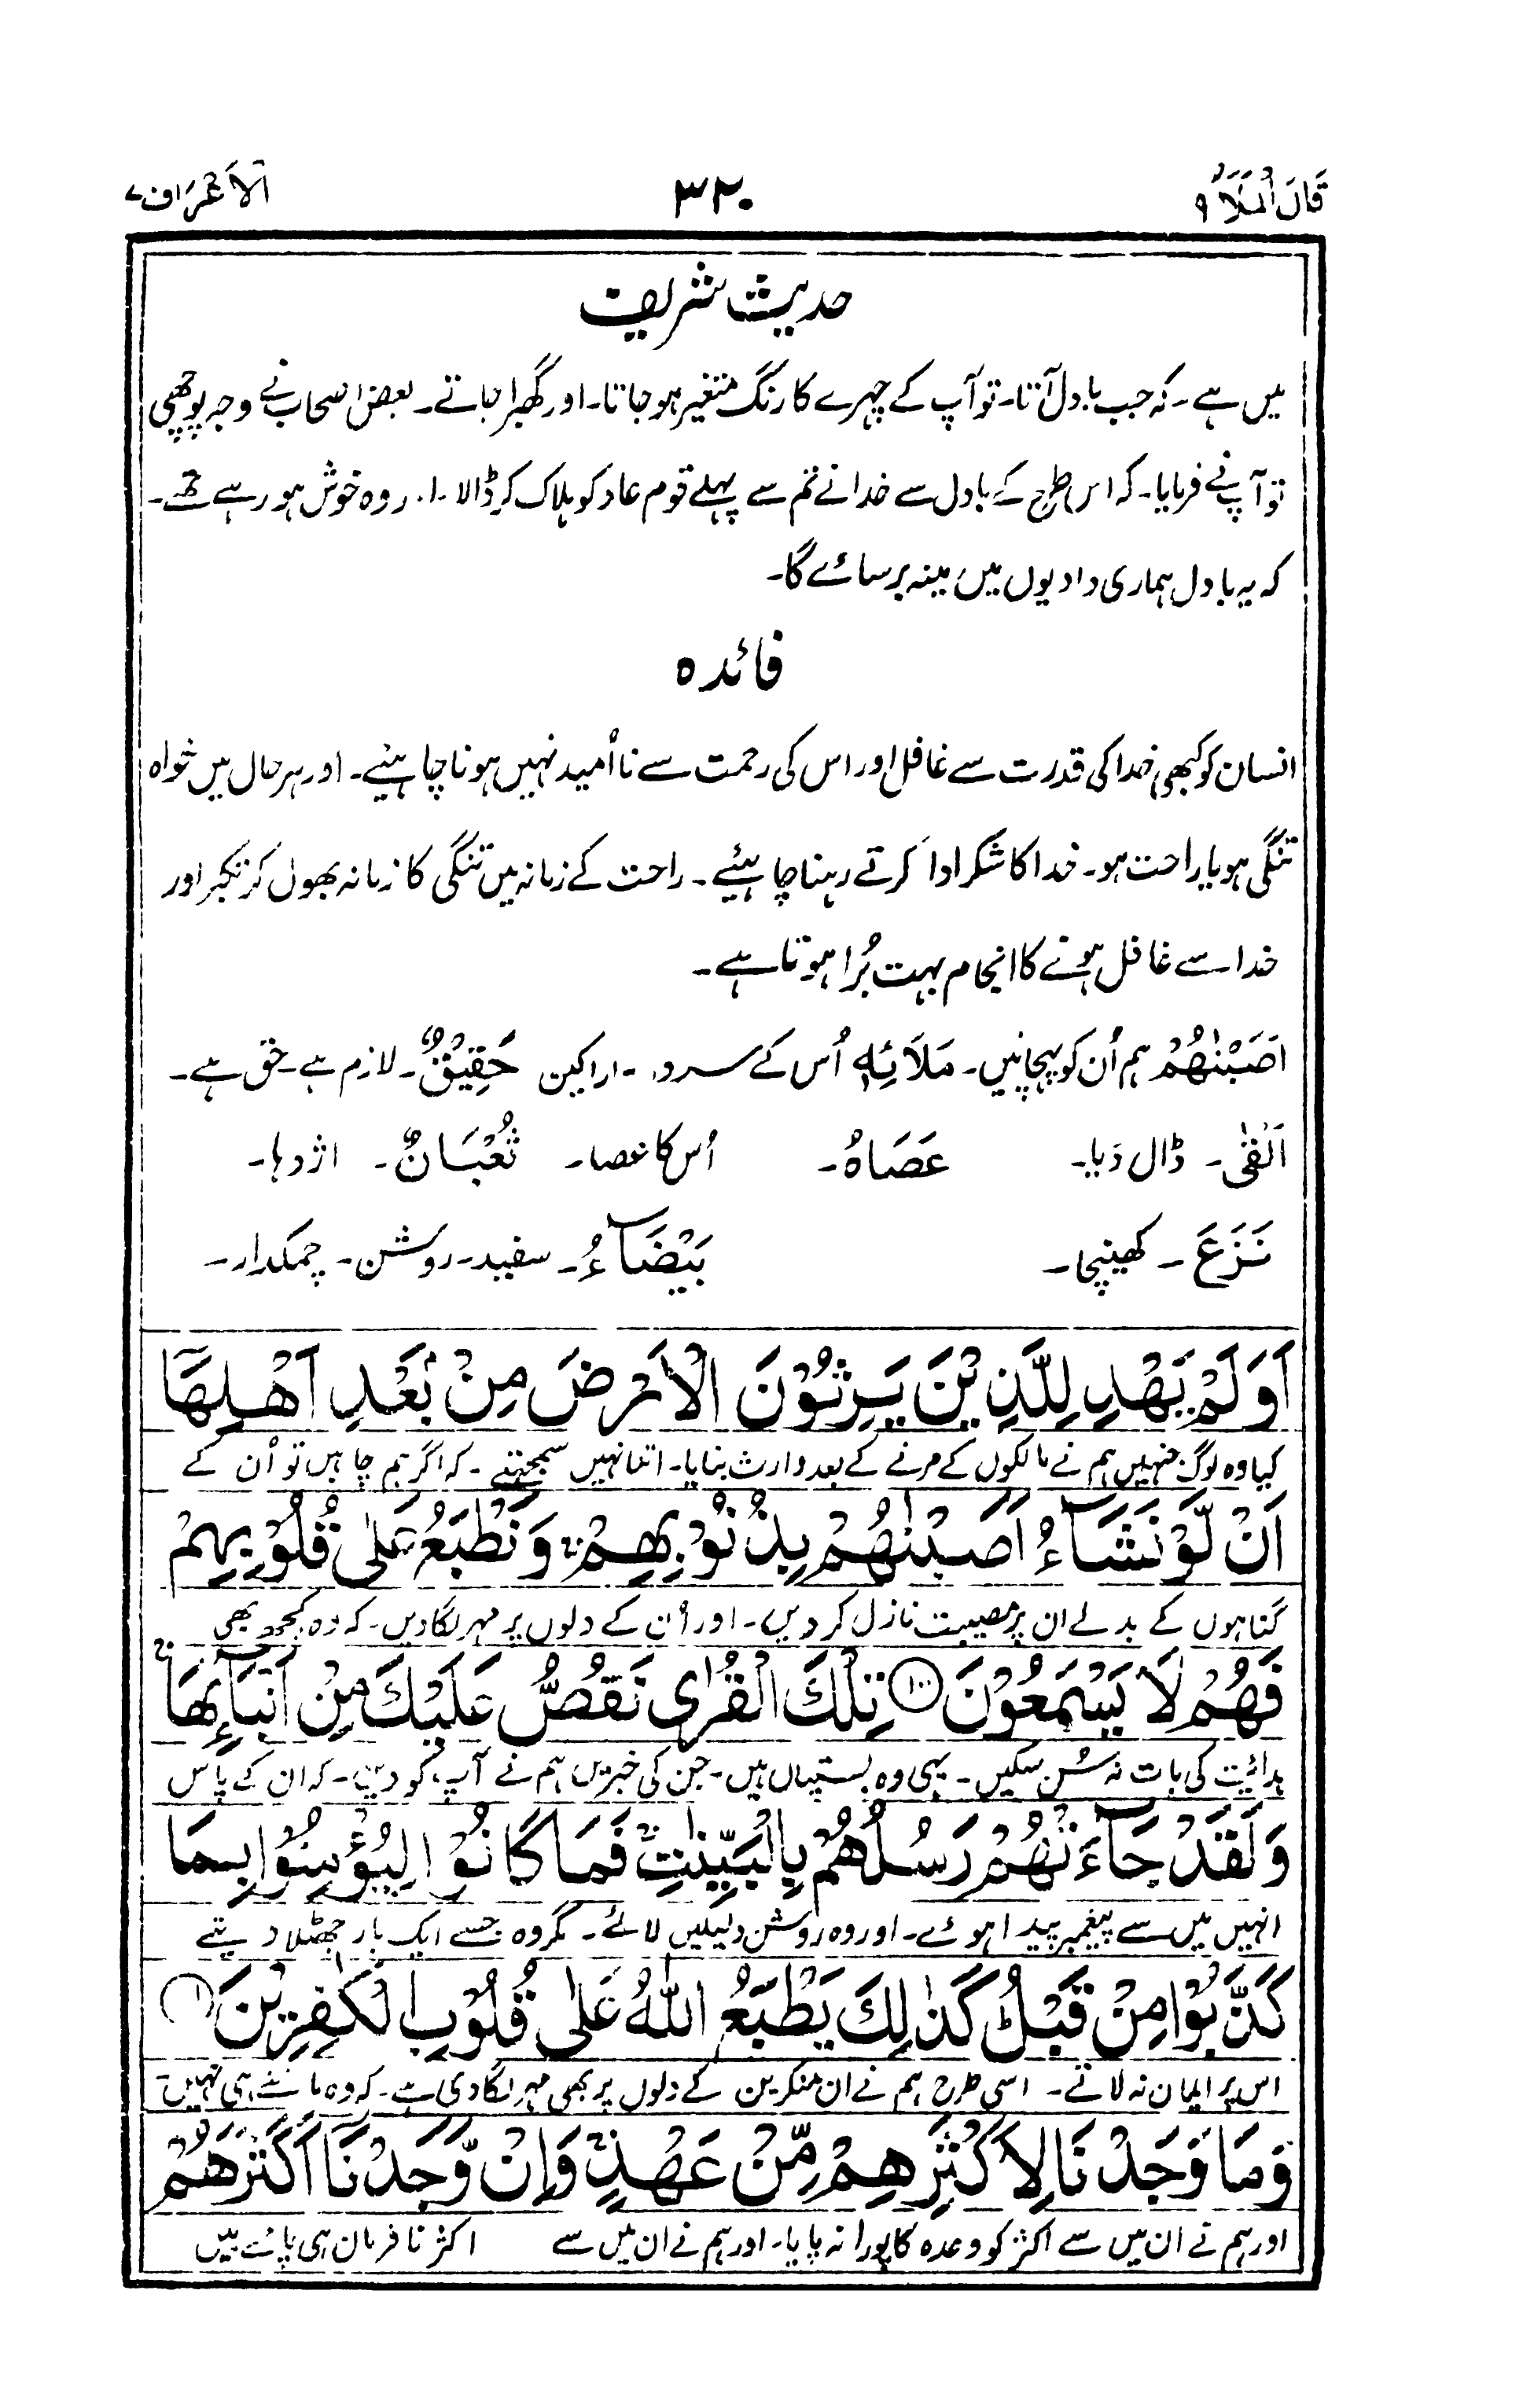 قَالَ الْمَلَاُ ۹
۳۲۰
اَلْاَعْرَاف ۷
حدیث شریف
میں ہے۔ کہ جب بادل آتا۔ تو آپ کے چہرے کا رنگ متغیر ہو جاتا۔ اور گھبرا جاتے۔ بعض اصحاب نے وجہ پوچھی
تو آپ نے فرمایا۔ کہ اس طرح کے بادل سے خدا نے تم سے پہلے قوم عاد کو ہلاک کر ڈالا۔ اور وہ خوش ہو رہے تھے۔
کہ یہ بادل ہماری وادیوں میں مینہ برسائے گا۔
فائدہ
انسان کو کبھی خدا کی قدرت سے غافل اور اس کی رحمت سے نا اُمید نہیں ہونا چاہئیے۔ اور ہر حال میں خواہ
تنگی ہو یا راحت ہو۔ خدا کا شکر ادا کرتے رہنا چاہئیے۔ راحت کے زمانہ میں تنگی کا زمانہ بھول کر تکبر اور
خدا سے غافل ہونے کا انجام بہت بُرا ہوتا ہے۔
اَصَبْنٰهُمْ ہم اُن کو پہچانیں۔ مَلَائِهٖ اُس کے سردار۔ اراکین حَقِيْقٌ۔ لازم ہے۔ حق ہے۔
اَلْقٰى۔ ڈال دَیا۔ عَصَاهُ۔ اُس کا عصا۔ ثُعْبَانٌ۔ اژدہا۔
نَزَعَ ۔ کھینچا۔ بَيْضَآءُ۔ سفید۔ روشن۔ چمکدار۔
اَوَلَمْ يَهْدِ لِلَّذِيْنَ يَرِثُوْنَ الْاَرْضَ مِنْ بَعْدِ اَهْلِهَآ
کیا وہ لوگ جنہیں ہم نے مالکوں کے مرنے کے بعد وارث بنایا۔ اتنا نہیں سمجھتے ۔ کہ اگر ہم چاہیں تو اُن کے
اَنْ لَّوْ نَشَآءُ اَصَبْنٰهُمْ بِذُنُوْبِهِمْ ۚ وَنَطْبَعُ عَلٰى قُلُوْبِهِمْ
گناہوں کے بدلے ان پر مصیبت نازل کر دیں۔ اور اُن کے دلوں پر مہر لگا دیں۔ کہ وہ کچھ بھی
فَهُمْ لَا يَسْمَعُوْنَ ۝۱۰۰ تِلْكَ الْقُرٰى نَقُصُّ عَلَيْكَ مِنْ اَنْۢبَآئِهَا ۚ
ہدائیت کی بات نہ سُن سکیں۔ یہی وہ بستیاں ہیں۔ جن کی خبریں ہم نے آپ کو دیں۔ کہ ان کے پاس
وَلَقَدْ جَآءَتْهُمْ رُسُلُهُمْ بِالْبَيِّنٰتِ ۚ فَمَا كَانُوْا لِيُؤْمِنُوْا بِمَا
انہیں میں سے پیغمبر پیدا ہوئے۔ اور وہ روشن دلیلیں لائے۔ مگر وہ جسے ایک بار جھٹلا دیتے
كَذَّبُوْا مِنْ قَبْلُ ۭ كَذٰلِكَ يَطْبَعُ اللّٰهُ عَلٰى قُلُوْبِ الْكٰفِرِيْنَ ۝۱
اس پر ایمان نہ لاتے۔ اسی طرح ہم نے ان منکرین کے دلوں پر بھی مہر لگا دی ہے۔ کہ وہ مانتے ہی نہیں
وَمَا وَجَدْنَا لِاَكْثَرِهِمْ مِّنْ عَهْدٍ ۚ وَاِنْ وَّجَدْنَآ اَكْثَرَهُمْ
اور ہم نے ان میں سے اکثر کو وعدہ کا پورا نہ پایا۔ اور ہم نے ان میں سے اکثر نافرمان ہی پائے ہیں